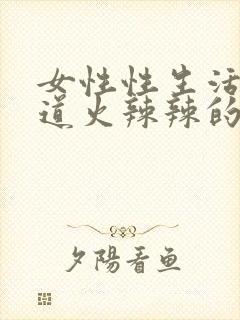 女性性生活
道火辣辣的
夕陽看鱼